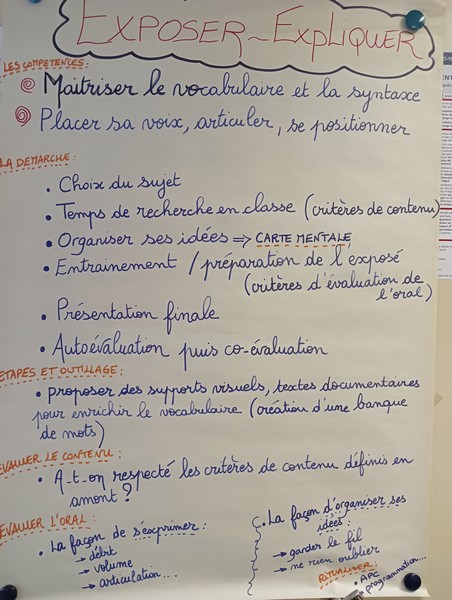 EXPOSER - EXPLIQUER
LES COMPETENCES:
Maitriser le vocabulaire et la syntaxe
Placer sa voix, articuler, se positionner
LA DEMARCHE :
• Choix du sujet
• Temps de recherche en classe (critères de contenu)
• Organiser ses idées ⇒ CARTE MENTALE
• Entrainement / préparation de l'exposé
(critères d'évaluation de
l'oral)
• Présentation finale
• Autoévaluation puis co-évaluation
ETAPES ET OUTILLAGE :
• proposer des supports visuels, textes documentaires
pour enrichir le vocabulaire (création d'une banque
de mots)
EVALUER LE CONTENU :
• A-t-on respecté les critères de contenu définis en
amont ?
EVALUER L'ORAL :
• La façon de s'exprimer :
→ débit
→ volume
→ articulation...
• La façon d'organiser ses
idées :
→ garder le fil
→ ne rien oublier
RITUALISER :
• APC
programmation...